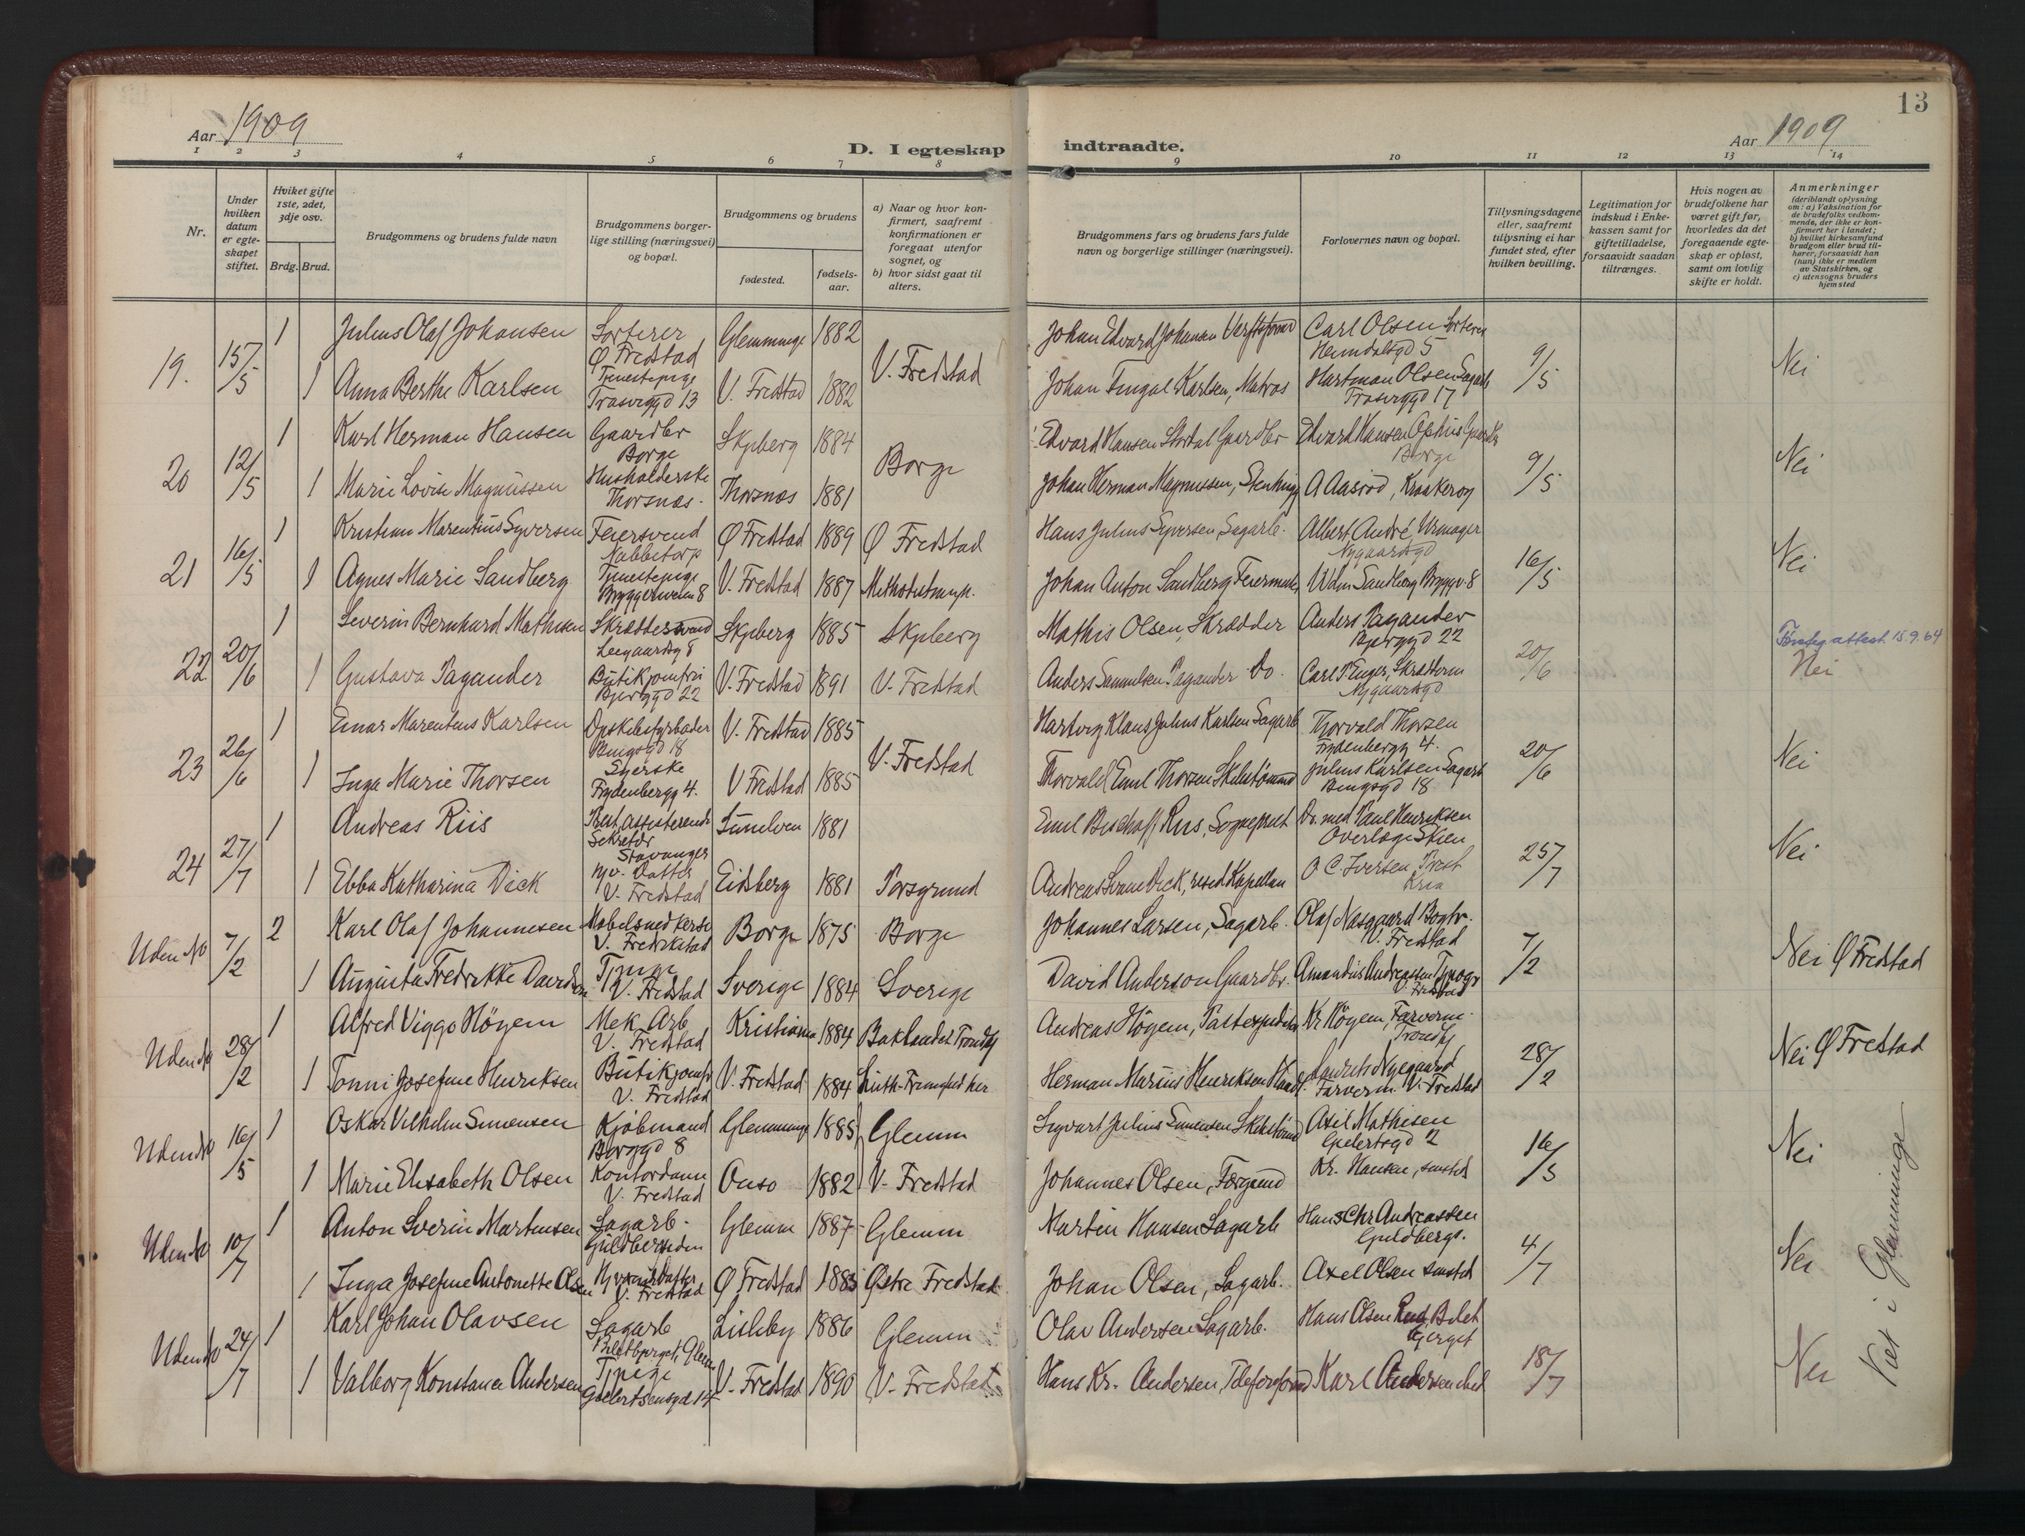 13
Aar 1909
D. I egteskap indtraadte.
Aar 1909
1 2 3 4 5 6 7 8 9 10 11 12 13 14
Nr.
Under hvilken datum er egteskapet stiftet.
Hvilket gifte 1ste, 2det, 3dje osv.
Brdg. Brud.
Brudgommens og brudens fulde navn
Brudgommens borgerlige stilling (næringsvei) og bopæl.
Brudgommens og brudens
fødested.
fødselsaar.
a) Naar og hvor konfirmert, saafremt konfirmationen er foregaat utenfor sognet, og
b) hvor sidst gaat til alters.
Brudgommens fars og brudens fars fulde navn og borgerlige stillinger (næringsvei).
Forlovernes navn og bopæl.
Tillysningsdagene eller, saafremt tillysning ei har fundet sted, efter hvilken bevilling.
Legitimation for indskud i Enkekassen samt for giftetilladelse, forsaavidt saadan tiltrænges.
Hvis nogen av brudefolkene har været gift før, hvorledes da det foregaaende egteskap er opløst, samt om lovlig skifte er holdt.
Anmerkninger
(deriblandt oplysning om: a) Vaksination for de brudefolks vedkommende, der ikke er konfirmert her i landet; b) hvilket kirkesamfund brudgom eller brud tilhører, forsaavidt han (hun) ikke er medlem av Statskirken, og c) utensogns bruders hjemsted
19. 15/5 1 Julius Olaf Johansen Sorterer Ø Fredstad Glemminge 1882 V. Fredstad Johan Edvard Johansen Carl Olsen Sorterer Heimdalsgd 5 9/5 Nei
1 Anna Berthe Karlsen Tjenestepige Trasviggd 13 V. Fredstad 1882 Johan Fingal Karlsen, Matros Hartman Olsen Sagarb Trasviggd 17
20 12/5 1 Karl Herman Hansen Gaardbr Borge Skjeberg 1884 Borge Edvard Hansen Stordal Gaardbr Edvard Hansen Borge 9/5 Nei
1 Marie Lovise Magnussen Husholderske Thorsnæs. Thorsnæs 1881 Johan Herman Magnussen, A Aasrød, Kraakerøy
21 16/5 1 Kristian Marentius Syversen Feiersvend Nabbetorp Ø Fredstad 1889 Ø Fredstad Hans Julius Syversen Sagarb. Albert André Urmager Nygaardsgd 16/5 Nei
1 Agnes Marie Sandberg Tjenestepige Bryggeriveien 8 V. Fredstad 1887 Johan Anton Sandberg Feiermester Vilh. Sandberg Bryggv. 8
22 20/6 1 Severin Bernhard Mathisen Skræddersvend Leegaardsg 8 Skjeberg 1885 Skjeberg Mathis Olsen, Skrædder Anders Pagander Bjerggd 22 20/6 Førstegattest 15.9.64 Nei
1 Gustava Pagander Butikjomfru Bjerggd 22 V. Fredstad 1891 V. Fredstad Anders Samuelsen Pagander Do. Carl P. Enger, Skrædderm Nygaardsgd
23 26/6 1 Einar Marentius Karlsen V. Fredstad 1885 V. Fredstad Hartvig Klaus Julius Karlsen Sagarb Thorvald Thorsen Frydenbergg 4. 20/6 Nei
1 Inga Marie Thorsen Syerske Frydenbergg 4. V Fredstad 1885 Thorvald Emil Thorsen Skibstømmerm Julius Karlsen Sagarb Bingsgd 18
24 27/7 1 Andreas Riis Best. assisterende Sekretær Stavanger Sunelven 1881 Emil Bischoff Riis, Sogneprest Dr. med Paul Henriksen Overlæge Skien 25/7 Nei
1 Ebba Katharina Dick Hjv. Datter V. Fredstad Eidsberg 1881 Porsgrund Andreas Dick, resid Kapellan O C. Iversen, Prest Kria
Uden No 7/2 2 Karl Olaf Johannesen Møbelsnedker V. Fredrikstad Borge 1875 Borge Johannes Larsen, Sagarb. Olaf Næsgaard Bogtr. V. Fredstad 7/2 Nei Ø Fredstad
1 Augusta Fredrikke Davidsen Tjpige V. Fredstad Sverige 1884 Sverige David Anderson Gaardbr. Amandus Andreassen Typogr V. Fredstad
Uden No 28/2 1 Alfred Viggo Høyem Mek. Arb V. Fredstad Kristiania 1884 Baklandet Trondhj Andreas Høyem, Postexpeditør Kr Høyem, Farverm. Trondhj 28/2 Nei Ø Fredstad
1 Tonni Josefine Henriksen Butikjomfr V. Fredstad V. Fredstad 1884 Luth. Frimenighed her Herman Marius Henriksen Laurits Nygaard Farverm V. Fredstad
Uden No 16/5 1 Oskar Vilhelm Simensen Kjøbmand Borggd 8 Glemminge 1885 Glemm Sigvart Julius Simensen Skibstømm Axel Mathisen Geelertsgd 2 16/5 Nei
1 Marie Elisabeth Olsen Kontordame V. Fredstad Onsø 1882 V. Fredstad Johannes Olsen, Færgmand Kr. Hansen, smsted
Uden No 10/7 1 Anton Sverin Martinsen Sagarb. Guldbergsiden Glemm 1887 Glemm Martin Hansen Sagarb Hans Chr Andreassen Guldbergs. 4/7 Nei
1 Inga Josefine Antonette Olsen Hjv. Datter V. Fredstad Ø Fredstad 1885 Østre Fredstad Johan Olsen, Sagarb. Axel Olsen smsted
Uden No 24/7 1 Karl Johan Olavsen Sagarb Biletberget, Glem Lisleby 1886 Glemm Olav Andersen Sagarb. Hans Olsen Rud, Biletberget 18/7 Nei
1 Valborg Konstance Andersen Tjpige Geelertsensgd 14 V. Fredstad 1890 V. Fredstad Hans Kr. Andersen, Karl Andersen
Viet i Glemminge